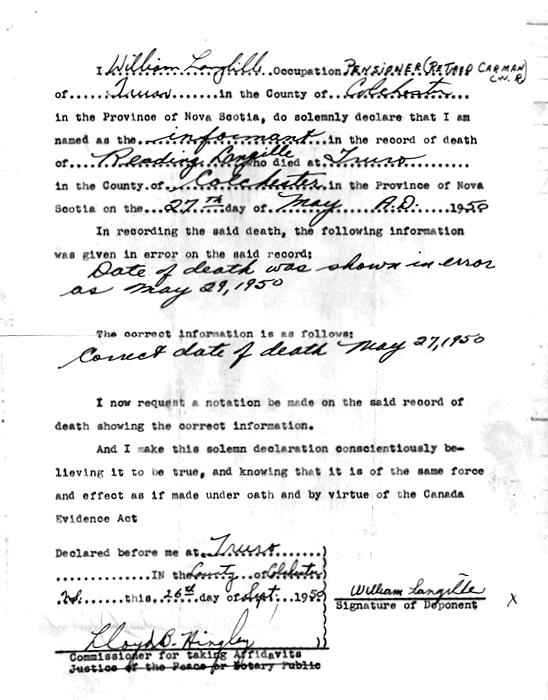 I William Langille Occupation PENSIONER (RETIRED CARMAN
C.N.R)
of Truro in the County of Colchester
in the Province of Nova Scotia, do solemnly declare that I am
named as the informant in the record of death
of Reading Langille who died at Truro
in the County of Colchester in the Province of Nova
Scotia on the 27th day of May A.D. 1950
In recording the said death, the following information
was given in error on the said record;
Date of death was shown in error
as May 29, 1950
The correct information is as follows;
Correct date of death May 27, 1950
I now request a notation be made on the said record of
death showing the correct information.
And I make this solemn declaration conscientiously be-
lieving it to be true, and knowing that it is of the same force
and effect as if made under oath and by virtue of the Canada
Evidence Act
Declared before me at Truro
IN the County of Colchester
N.S. this 26th day of Sept. 1950
William Langille
Signature of Deponent X
Lloyd B. Hingley
Commissioner for taking Affidavits
Justice of the Peace or Notary Public